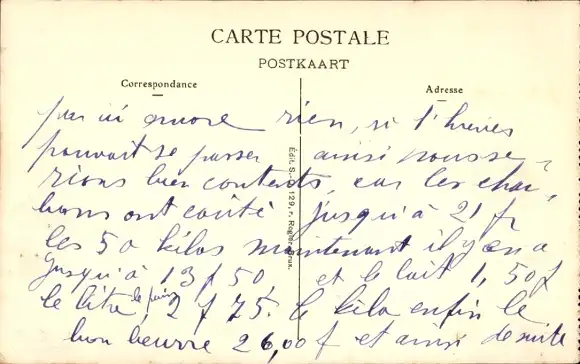 CARTE POSTALE
POSTKAART
Correspondance
Adresse
par ici encore rien, si l'hivers
pouvait se passer ainsi nous se
rions bien contents, car les char,
bons ont coûté jusqu'à 21 fr
les 50 kilos maintenant il y en a
jusqu'à 13 f 50, et le lait 1,50 f
le litre, le pain 2 f 75. le kilo enfin le
bon beurre 26,00 f et ainsi de suite
Edit. S. 129, r. Brux.